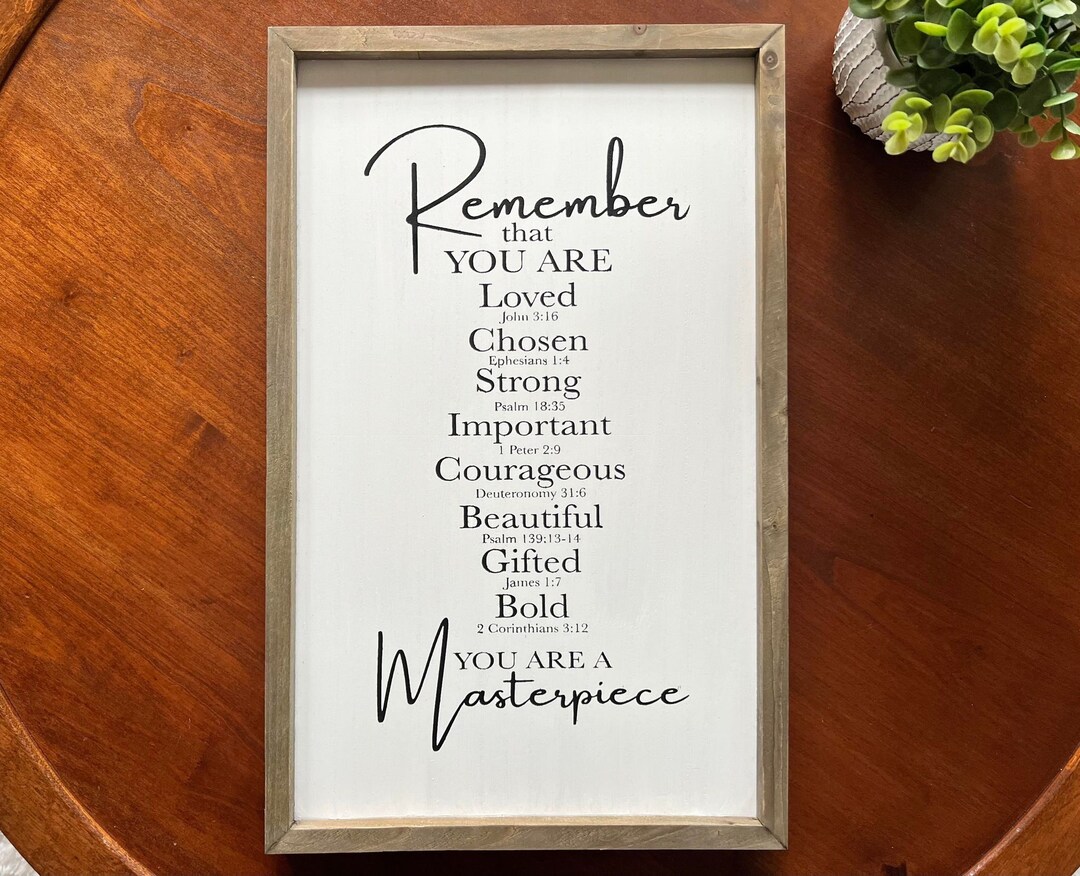 Remember
that
YOU ARE
Loved
John 3:16
Chosen
Ephesians 1:4
Strong
Psalm 18:35
Important
1 Peter 2:9
Courageous
Deuteronomy 31:6
Beautiful
Psalm 139:13-14
Gifted
James 1:7
Bold
2 Corinthians 3:12
YOU ARE A
Masterpiece